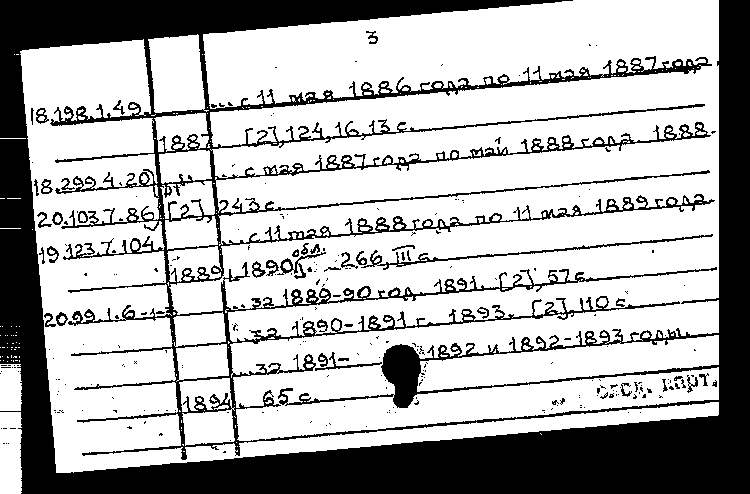 3
18.198.1.49. ... с 11 мая 1886 года по 11 мая 1887 года.
1887. [2], 124, 16, 13 с.
18.299.4.20 ... с мая 1887 года по май 1888 года. 1888.
20.103.7.86 [2], 243 с.
19.123.7.104. ... с 11 мая 1888 года по 11 мая 1889 года.
1889, 1890 обл. 266, III с.
20.99.1.6-1-3 ... за 1889-90 год. 1891. [2], 57 с.
... за 1890-1891 г. 1893. [2], 110 с.
... за 1891-1892 и 1892-1893 годы.
1894. 65 с.
след. карт.